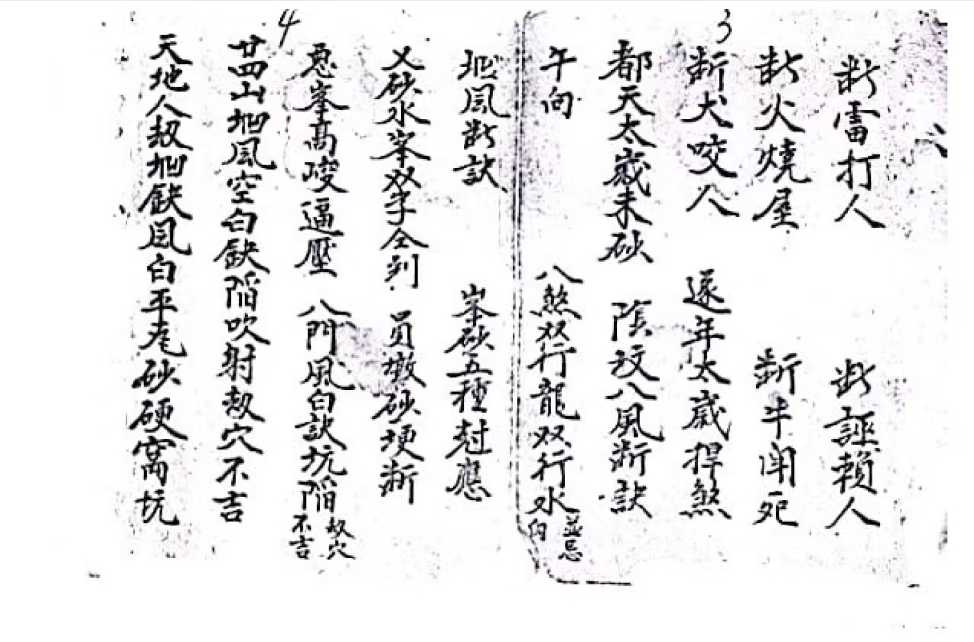 3
断雷打人 断誣賴人
断火燒屋 断牛闹死
断犬咬人 逐年太歲捍煞
都天太歲未砂 陰坟八風断訣
午向 八煞双行龍双行水並忌向
4
地風断訣 峯砂五種尅應
乂砂水峯双手仝到 員墩砂埂断
恶峯高峻逼壓 八門風白訣坑陷 刼穴不吉
廿四山地風空白缺陷吹射刼穴不吉
天地人刼地缺風白平尾砂硬窩坑